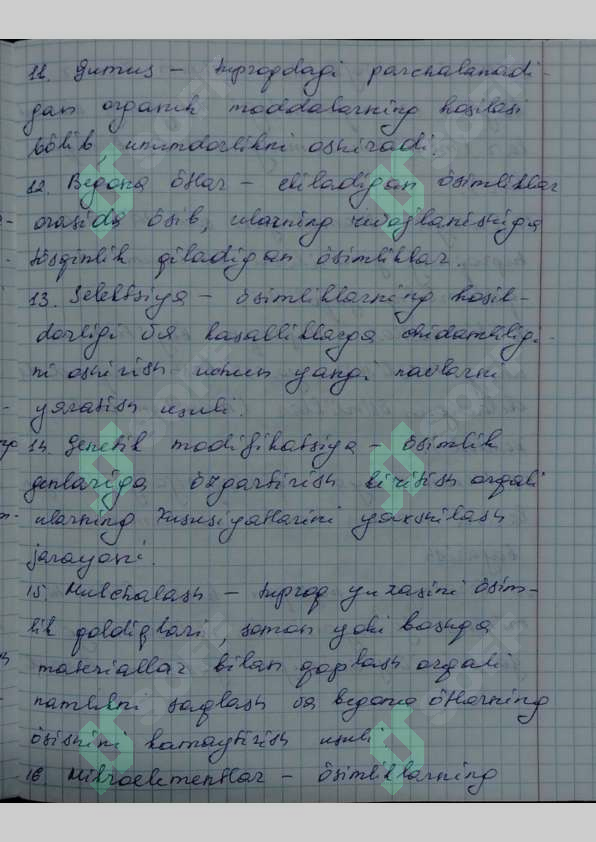 11. Gumus – tuproqdagi parchalanadi-
gan organik moddalarning hosilasi
bòlib, unumdorlikni oshiradi.
12. Begona òtlar – ekiladigan òsimliklar
orasida òsib, ularning rivojlanishiga
tòsqinlik qiladigan òsimliklar.
13. Selektsiya – òsimliklarning hosil-
dorligi va kasalliklarga chidamliligi-
ni oshirish uchun yangi navlarni
yaratish usuli.
14. Genetik modifikatsiya – òsimlik
genlariga òzgartirish kiritish orqali
ularning xususiyatlarini yaxshilash
jarayoni.
15. Mulchalash – tuproq yuzasini òsim-
lik qoldiqlari, somon yoki boshqa
materiallar bilan qoplash orqali
namlikni saqlash va begona òtlarning
òsishini kamaytirish usuli.
16 Mikroelementlar – òsimliklarning